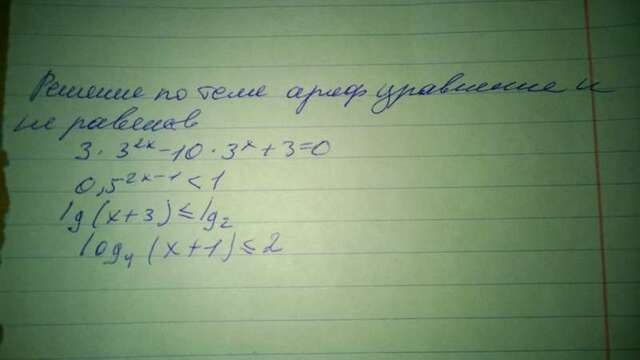 Решение по теме ариф уравнение и
не равенсв
3 · 3^2x - 10 · 3^x + 3 = 0
0,5^2x-1 < 1
lg (x+3) ≤ lg2
log4 (x+1) ≤ 2